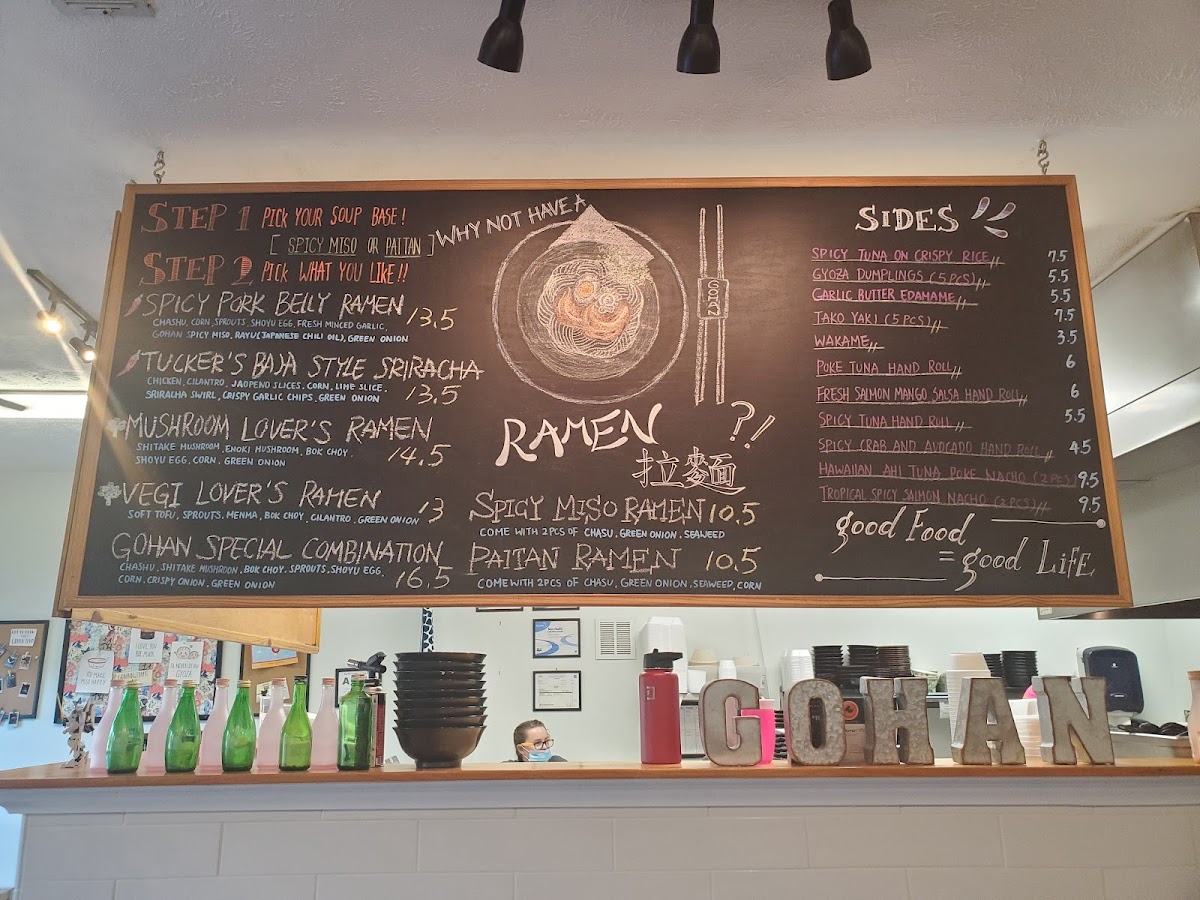 STEP 1 PICK YOUR SOUP BASE!
[ SPICY MISO OR PAITAN ]
STEP 2 PICK WHAT YOU LIKE!!
SPICY PORK BELLY RAMEN 13.5
CHASHU, CORN, SPROUTS, SHOYU EGG, FRESH MINCED GARLIC,
GOHAN SPICY MISO, RAYU(JAPANESE CHILI OIL), GREEN ONION
TUCKER'S BAJA STYLE SRIRACHA
CHICKEN, CILANTRO, JAOPENO SLICES, CORN, LIME SLICE,
SRIRACHA SWIRL, CRISPY GARLIC CHIPS, GREEN ONION 13.5
MUSHROOM LOVER'S RAMEN
SHITAKE MUSHROOM, ENOKI MUSHROOM, BOK CHOY,
SHOYU EGG, CORN, GREEN ONION 14.5
VEGI LOVER'S RAMEN 13
SOFT TOFU, SPROUTS, MENMA, BOK CHOY, CILANTRO, GREEN ONION
GOHAN SPECIAL COMBINATION
CHASHU, SHITAKE MUSHROOM, BOK CHOY, SPROUTS, SHOYU EGG,
CORN, CRISPY ONION, GREEN ONION 16.5
WHY NOT HAVE A
GOHAN
RAMEN ?!
拉麵
SPICY MISO RAMEN 10.5
COME WITH 2PCS OF CHASU, GREEN ONION, SEAWEED
PAITAN RAMEN 10.5
COME WITH 2PCS OF CHASU, GREEN ONION, SEAWEED, CORN
SIDES
SPICY TUNA ON CRISPY RICE 7.5
GYOZA DUMPLINGS (5PCS) 5.5
GARLIC BUTTER EDAMAME 5.5
TAKO YAKI (5PCS) 7.5
WAKAME 3.5
POKE TUNA HAND ROLL 6
FRESH SALMON MANGO SALSA HAND ROLL 6
SPICY TUNA HAND ROLL 5.5
SPICY CRAB AND AVOCADO HAND ROLL 4.5
HAWAIIAN AHI TUNA POKE NACHO (2PCS) 9.5
TROPICAL SPICY SALMON NACHO (2PCS) 9.5
good Food
= good LiFE
GOHAN